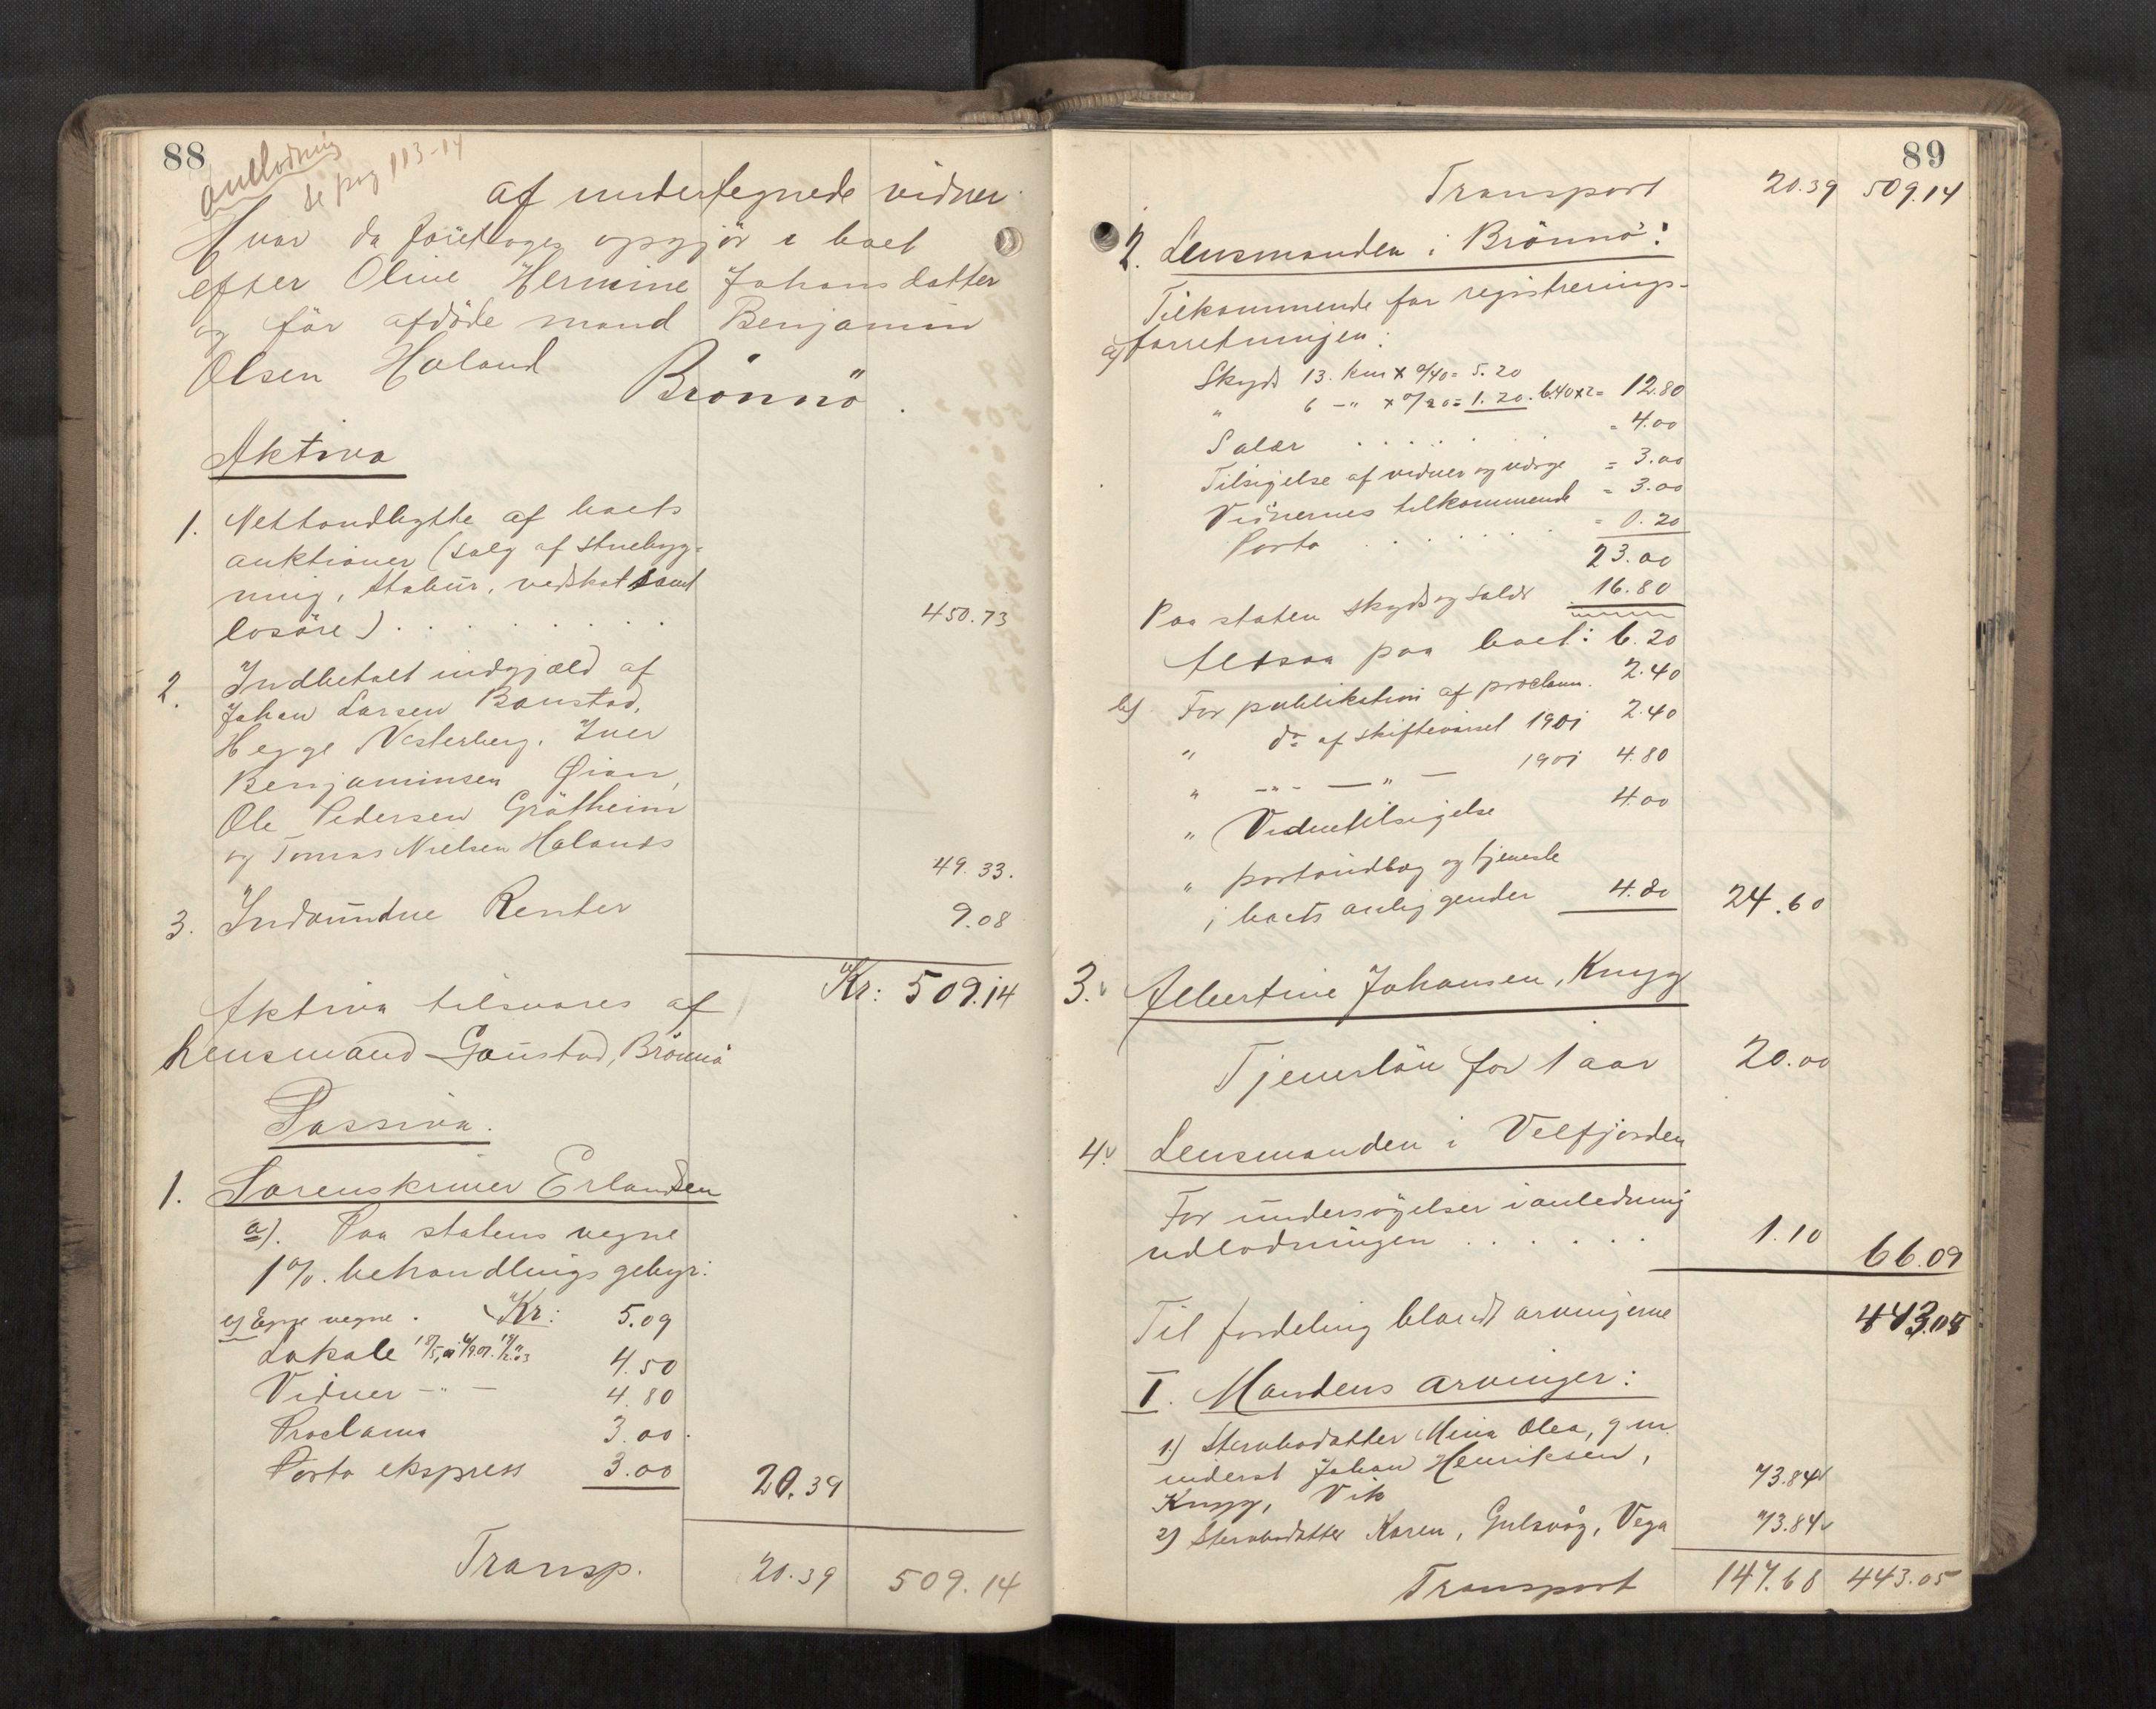 88
se pag 113-14
af undertegnede vidner.
Hvor da foretoges opgjör i boet
efter Oline Hermine Johansdatter
og før afdöde mand Benjamin
Olsen Holand Brönnö.
Aktiva
1. Nettoudbytte af boets
auktioner (salg af stuebyg-
ning, stabur, vedskot samt
losöre) . . . . . . . . 450.73
2. Indbetalt indgjæld af
Johan Larsen Baustad,
Hegge Vesterberg, Iver
Benjaminsen Øian,
Ole Pedersen Gröttheim
og Tomas Nielsen Holands 49.33.
3. Indvundne Renter 9.08
Kr: 509.14
Aktiva tilsvares af
Lensmand Gaustad, Brönnö
Passiva.
1. Sorenskriver Erlandsen
a). Paa statens vegne
1%. behandlingsgebyr:
Kr: 5.09
b) Egne vegne.
Lokale 4.50
Vidner -"- 4.80
Proclama 3.00.
Porto ekspress 3.00 20.39
Transp. 20.39 509.14
89
Transport 20.39 509.14
2. Lensmanden i Brönnö:
Tilkommende for registrerings-
a) forretningen:
Skyds 13. km x 0/40 = 5.20
" 6 -"- x 0/20 = 1.20. 6.40x2 = 12.80
Salær . . . . . = 4.00
Tilsigelse af vidner og værge = 3.00
Vidnernes tilkommende = 3.00
Porto . . . . . . = 0.20
23.00
Paa staten skyds og salær 16.80
Altsaa paa boet: 6.20
b) For publikation af proclam. 2.40
" do af skiftevarsel 1901 2.40
" -"- -"- 1901 4.80
" Vidnetilsigelse 4.00
" portoudlæg og tjeneste
i boets anliggender 4.80 24.60
3. Albertine Johansen, Knygg
Tjenerlön for 1 aar 20.00
4. Lensmanden i Velfjorden
For undersögelser i anledning
udlodningen . . . . . . 1.10 66.09
Til fordeling blandt arvingerne 443.05
I. Mandens arvinger:
1) Sterbodatter Mina Olea, g.m.
inderst Johan Henriksen,
Knygg, Vik 73.84
2) Sterbodatter Karen, Gulsvåg, Vega 73.84
Transport 147.68 443.05